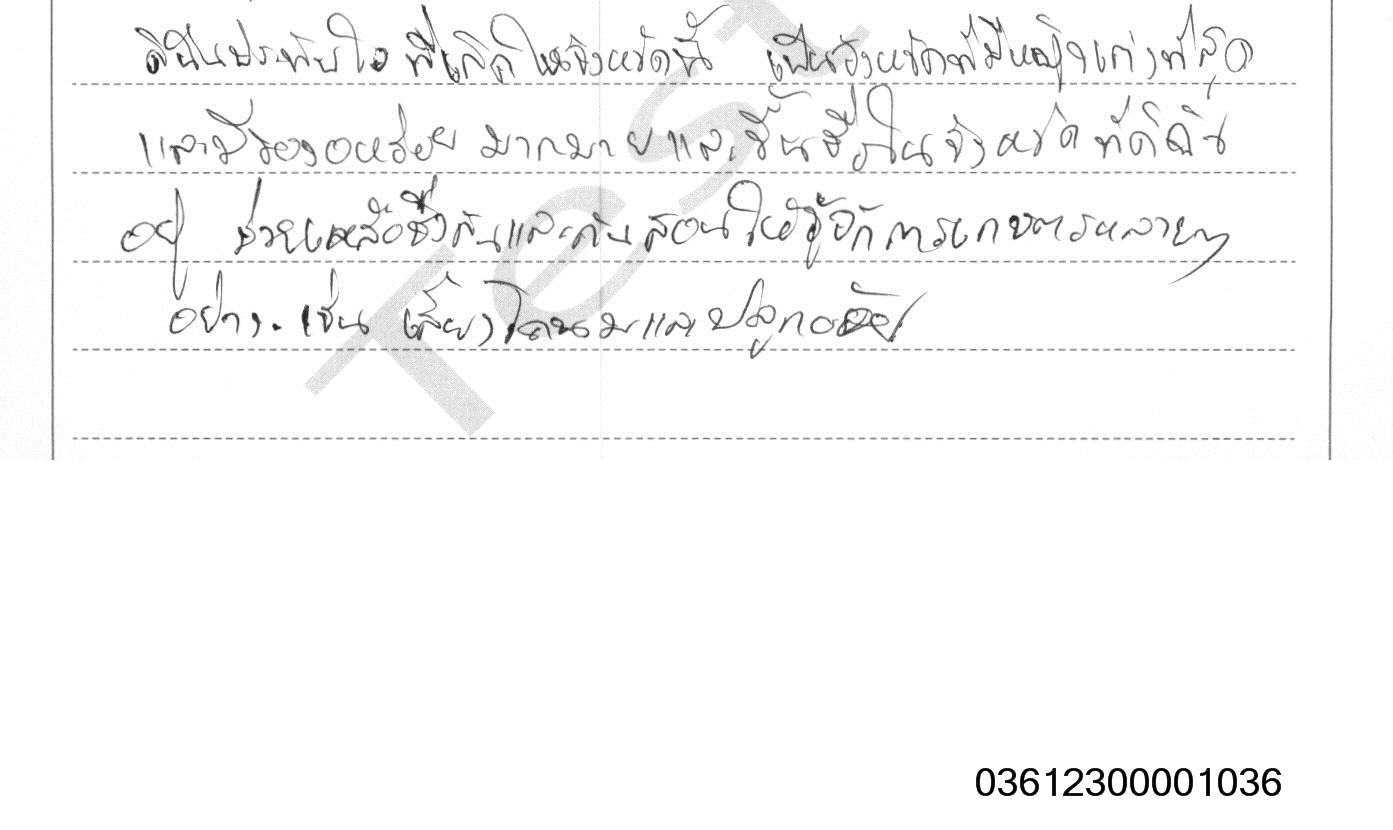 ดิฉันประทับใจ ที่เกิดในจังหวัดนี้ เป็นจังหวัดที่มีหญิงเก่งที่สุด
และมีของอหร่อย มากมายและขึ้นชื่อในจังหวัด ที่ดิฉัน
อยู่ ช่วยเหลือซึ่งกันและกัน สอนให้รู้จักการเกษตรหลายๆ
อย่าง. เช่น เลี้ยงโคนมและปลูกอ้อย
Test
03612300001036